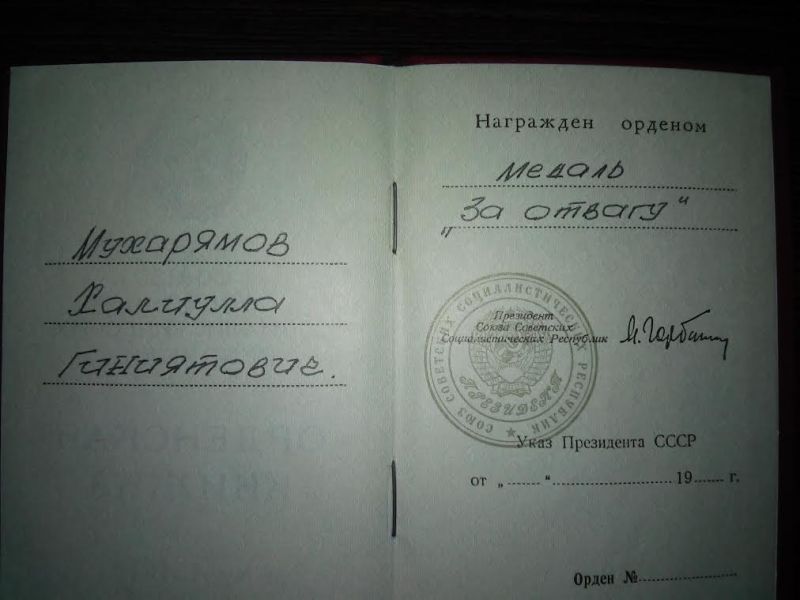 Мухарямов
Хамиулла
Гиниятович.
Награжден орденом
Медаль
"За отвагу"
Президент
Союза Советских
Социалистических Республик
М. Горбачев
СОЮЗ СОВЕТСКИХ СОЦИАЛИСТИЧЕСКИХ РЕСПУБЛИК
ПРЕЗИДЕНТ
Указ Президента СССР
от „ “ 19 г.
Орден №